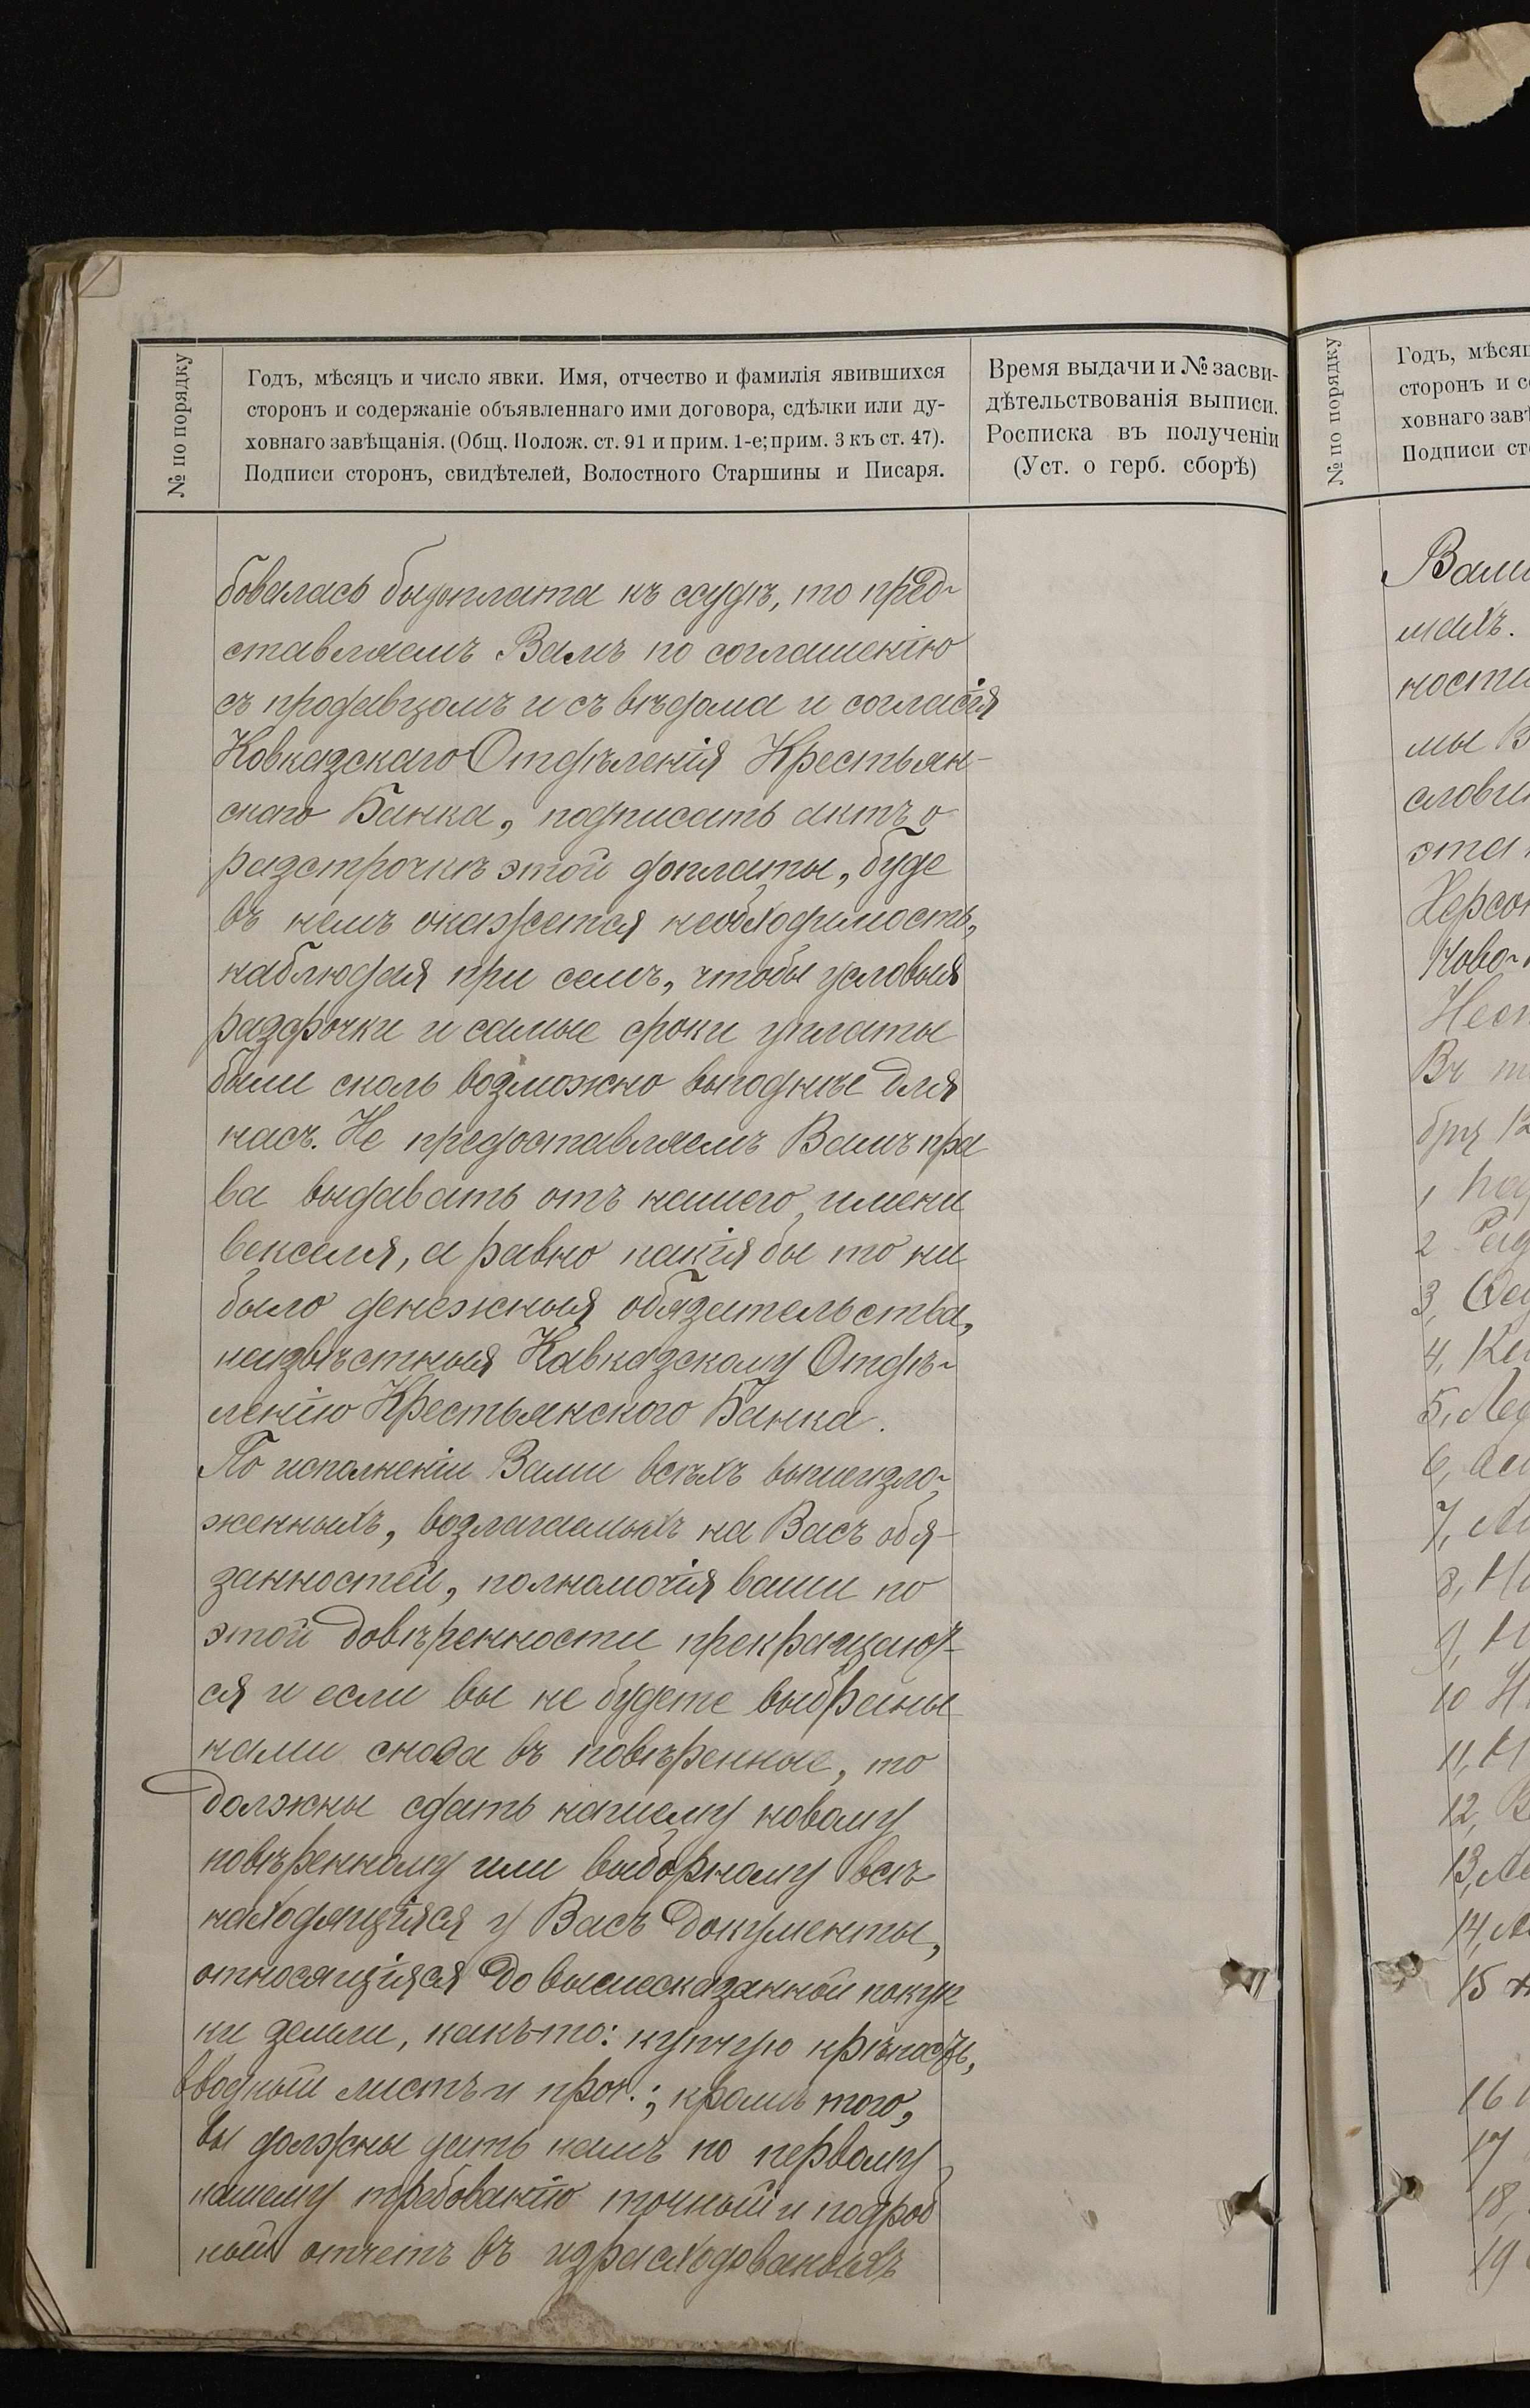 № по порядку
Годъ, мѣсяцъ и число явки. Имя, отчество и фамилія явившихся
сторонъ и содержаніе объявленнаго ими договора, сдѣлки или ду-
ховнаго завѣщанія. (Общ. Полож. ст. 91 и прим. 1-е; прим. 3 къ ст. 47).
Подписи сторонъ, свидѣтелей, Волостного Старшины и Писаря.
Время выдачи и № засви-
дѣтельствованія выписи.
Росписка въ полученіи
(Уст. о герб. сборѣ)
бовалась бы доплата къ ссудѣ, то пред-
ставляемъ Вамъ по соглашенію
съ продавцомъ и съ вѣдома и согласія
Ковказскаго Отдѣленія Крестьян-
скаго Банка, подписать актъ о
разстрочкѣ этой доплаты, буде
въ немъ окажется необходимость,
наблюдая при семъ, чтобы условия
разсрочки и самые сроки уплаты
были сколь возможно выгоднѣе для
насъ. Не предоставляемъ Вамъ пра
ва выдавать отъ нашего имени
векселя, а равно какія бы то ни
было денежныя обязательства,
неизвѣстныя Кавказскому Отдѣ-
ленію Крестьянского Банка.
По исполненіи Вами всѣхъ вышеизло-
женныхъ, возлагаемыхъ на Васъ обя-
занностей, полномочія ваши по
этой довѣренности прекращают-
ся и если вы не будете выбраны
нами снова въ повѣренные, то
должны сдать нашему новому
повѣренному или выборному всѣ
находящіяся у Васъ документы,
относящіяся до вышесказанной покуп
ки земли, какъ-то: купчую крѣпость,
вводный листъ и проч.; кромѣ того,
вы должны дать намъ по первому
нашему требованію точный и подроб
ный отчетъ въ израсходованныхъ
№ по порядку
Годъ, мѣсяц
сторонъ и со
ховнаго завѣ
Подписи сто
Вами
шахъ.
ности
мы В
словии
эта
Херсон
Ново-
Въ
1
2
3,
4,
5,
6,
7,
8,
9,
10
11,
12,
13,
14,
15
16
17
18,
19